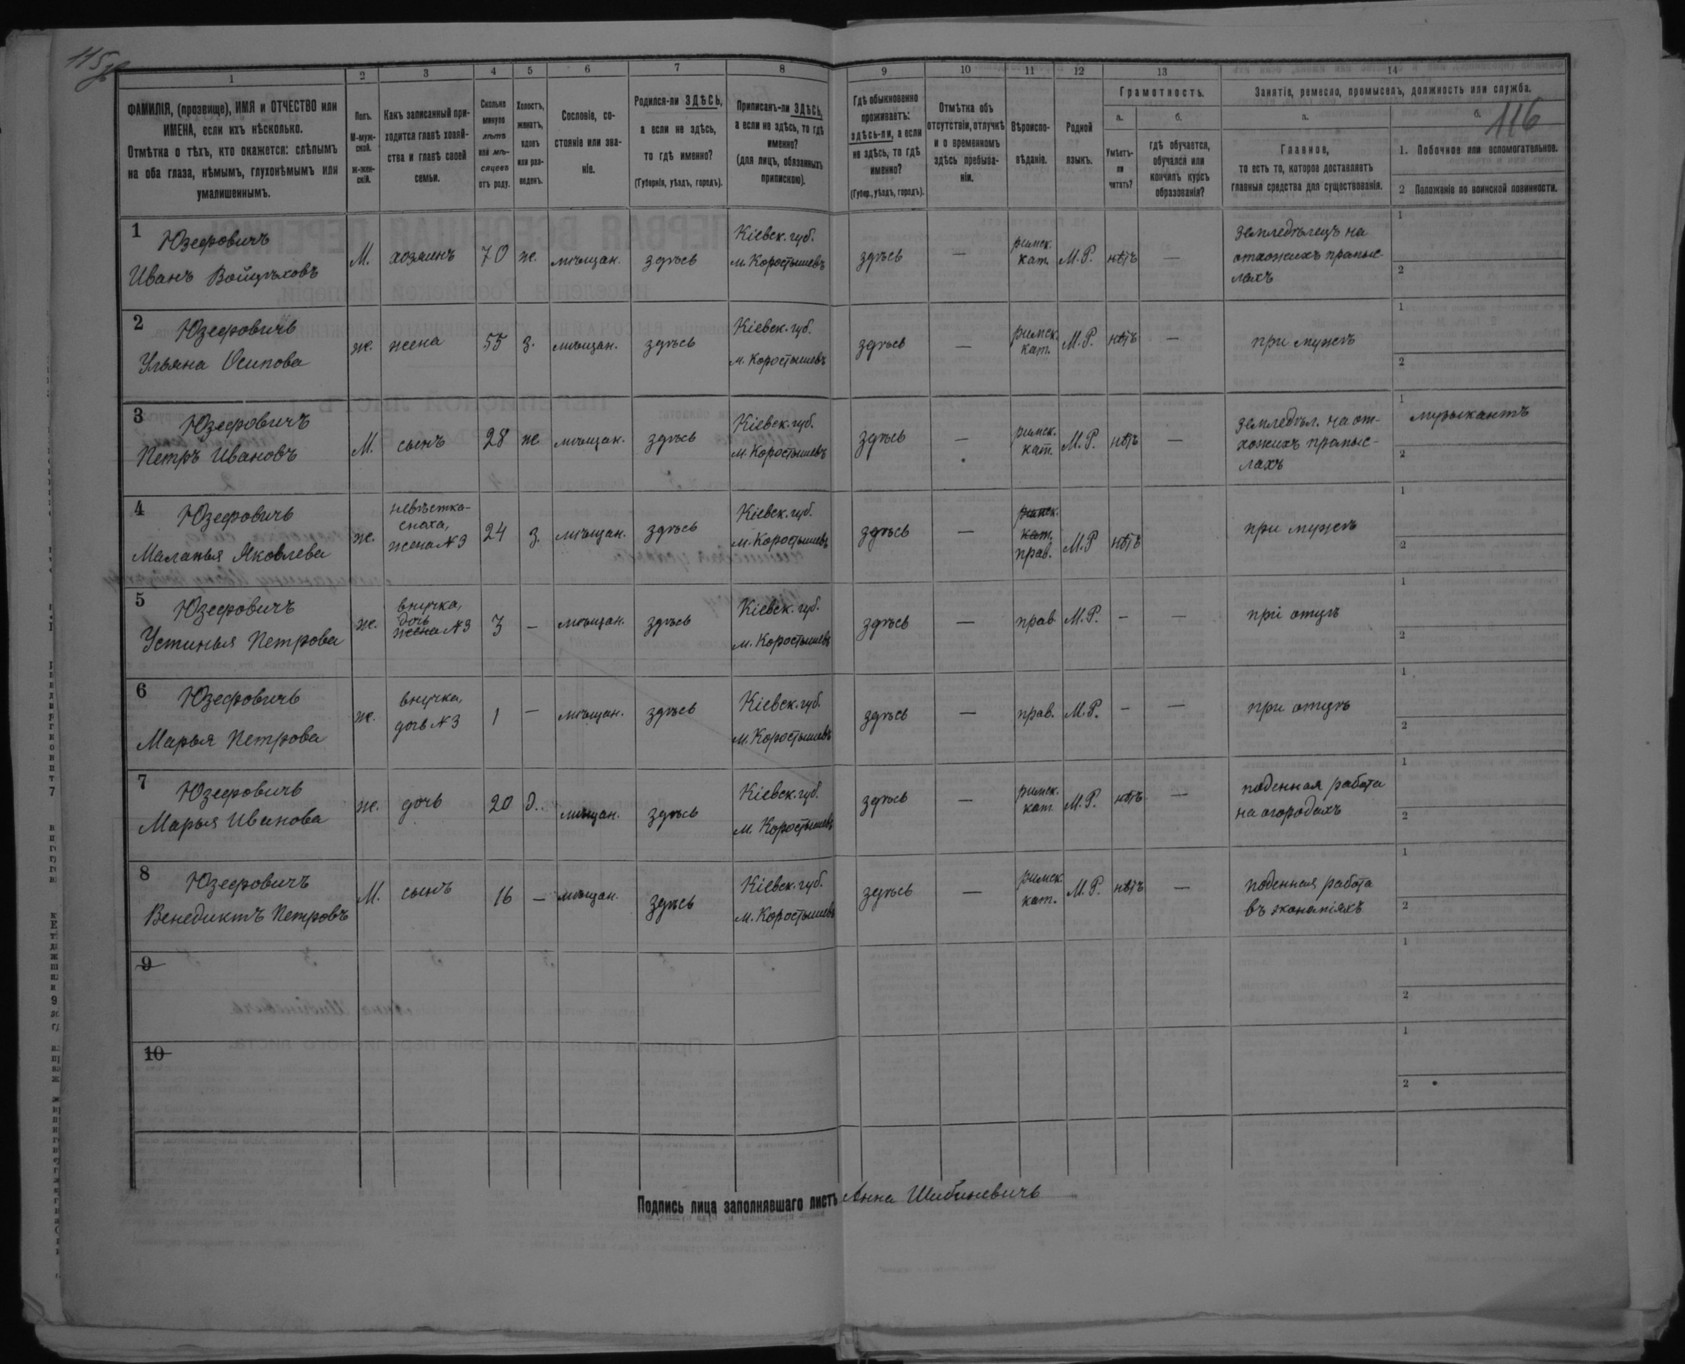 115
116
1 2 3 4 5 6 7 8 9 10 11 12 13 14
ФАМИЛІЯ, (прозвище), ИМЯ и ОТЧЕСТВО или
ИМЕНА, если ихъ нѣсколько.
Отмѣтка о тѣхъ, кто окажется: слѣпымъ
на оба глаза, нѣмымъ, глухонѣмымъ или
умалишеннымъ.
Полъ.
М-муж-
ской.
Ж-жен-
скій.
Какъ записанный при-
ходится главѣ хозяй-
ства и главѣ своей
семьи.
Сколько
минуло
лѣтъ
или мѣ-
сяцевъ
отъ роду.
Холостъ,
женатъ,
вдовъ
или раз-
веденъ.
Сословіе, со-
стояніе или зва-
ніе.
Родился-ли ЗДѢСЬ,
а если не здѣсь,
то гдѣ именно?
(Губернія, уѣздъ, городъ).
Приписанъ-ли ЗДѢСЬ,
а если не здѣсь, то гдѣ
именно?
(для лицъ, обязанныхъ
припискою).
Гдѣ обыкновенно
проживаетъ:
здѣсь-ли, а если
не здѣсь, то гдѣ
именно?
(Губер., уѣздъ, городъ).
Отмѣтка объ
отсутствіи, отлучкѣ
и о временномъ
здѣсь пребыва-
ніи.
Вѣроиспо-
вѣданіе.
Родной
языкъ.
Грамотность.
а. б.
Умѣетъ-
ли
читать?
гдѣ обучается,
обучался или
кончилъ курсъ
образованія?
Занятіе, ремесло, промыселъ, должность или служба.
а. б.
Главное,
то есть то, которое доставляетъ
главныя средства для существованія.
1. Побочное или вспомогательное.
2 Положеніе по воинской повинности.
1 Юзефовичъ
Иванъ Войцѣховъ М. хозяинъ 70 ж. мѣщан. здѣсь
Кіевск. губ.
м. Коростышевъ здѣсь —
римск.
кат. М.Р. нѣтъ —
земледѣлецъ на
отхожихъ промыс-
лахъ
1
2
2 Юзефовичъ
Ульяна Осипова ж. жена 55 з. мѣщан. здѣсь
Кіевск. губ.
м. Коростышевъ здѣсь —
римск.
кат. М.Р. нѣтъ — при мужѣ
1
2
3 Юзефовичъ
Петръ Ивановъ М. сынъ 28 ж. мѣщан. здѣсь
Кіевск. губ.
м. Коростышевъ здѣсь —
римск.
кат. М.Р. нѣтъ —
земледѣл. на от-
хожихъ промыс-
лахъ
1 музыкантъ
2
4 Юзефовичъ
Маланья Яковлева ж.
невѣстка-
сноха,
жена №3 24 з. мѣщан. здѣсь
Кіевск. губ.
м. Коростышевъ здѣсь —
римск.
кат.
прав. М.Р. нѣтъ при мужѣ
1
2
5 Юзефовичъ
Устинья Петрова ж.
внучка,
дочь
жена №3 3 — мѣщан. здѣсь
Кіевск. губ.
м. Коростышевъ здѣсь — прав М.Р. — — при отцѣ
1
2
6 Юзефовичъ
Марья Петрова ж.
внучка,
дочь №3 1 — мѣщан. здѣсь
Кіевск. губ.
м. Коростышевъ здѣсь — прав. М.Р. — — при отцѣ
1
2
7 Юзефовичъ
Марья Иванова ж. дочь 20 д. мѣщан. здѣсь
Кіевск. губ.
м. Коростышевъ здѣсь —
римск.
кат. М.Р. нѣтъ —
поденная работа
на огородахъ
1
2
8 Юзефовичъ
Венедиктъ Петровъ М. сынъ 16 — мѣщан. здѣсь
Кіевск. губ.
м. Коростышевъ здѣсь —
римск.
кат. М.Р. нѣтъ —
поденная работа
въ экономіяхъ
1
2
9
1
2
10
1
2
Подпись лица заполнявшаго листъ Анна